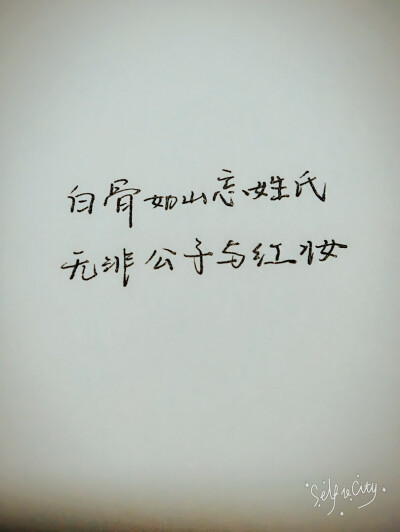 白骨如山忘姓氏
无非公子与红妆
Selfie City